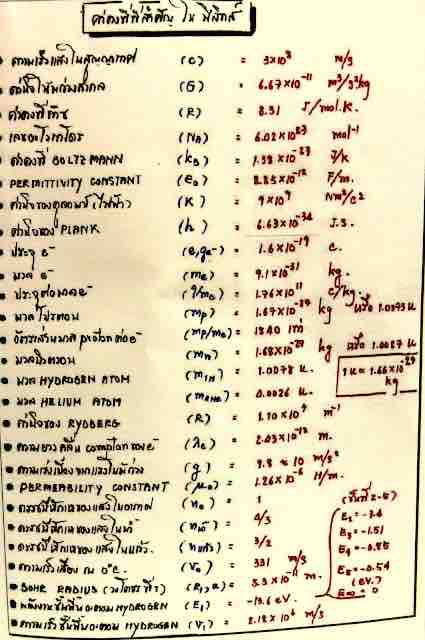 ค่าคงที่ที่สำคัญ ใน ฟิสิกส์
• ความเร็วแสงในสุญญากาศ (c) = 3×10⁸ m/s
• ค่านิจโน้มถ่วงสากล (G) = 6.67×10⁻¹¹ m³/s²kg
• ค่าคงที่ก๊าซ (R) = 8.31 J/mol.K.
• เลขอโวกาโดร (NA) = 6.02×10²³ mol⁻¹
• ค่าคงที่ BOLTZMANN (kB) = 1.38×10⁻²³ J/k
• PERMITTIVITY CONSTANT (e₀) = 8.85×10⁻¹² F/m.
• ค่านิจของคูลอมบ์ (ไฟฟ้า) (K) = 9×10⁹ Nm²/c²
• ค่านิจของ PLANK (h) = 6.63×10⁻³⁴ J.S.
• ประจุ e⁻ (e,qe⁻) = 1.6×10⁻¹⁹ c.
• มวล e⁻ (me) = 9.1×10⁻³¹ kg.
• ประจุต่อมวล e⁻ (q/me) = 1.76×10¹¹ c/kg.
• มวลโปรตอน (mp) = 1.67×10⁻²⁷ kg หรือ 1.0073 u
• อัตราส่วนมวล proton ต่อ e⁻ (mp/me) = 1840 เท่า
• มวลนิวตรอน (mn) = 1.68×10⁻²⁷ kg หรือ 1.0087 u
• มวล HYDROGEN ATOM (m1H) = 1.0078 u.
1 u = 1.66×10⁻²⁷ kg
• มวล HELIUM ATOM = 0.0026 u.
• ค่านิจของ RYDBERG (R) = 1.10×10⁷ m⁻¹
• ความยาวคลื่น compton ของ e⁻ (λc) = 2.43×10⁻¹² m.
• ความเร่งเนื่องจากแรงโน้มถ่วง (g) = 9.8 ≈ 10 m/s²
• PERMEABILITY CONSTANT (μ₀) = 1.26×10⁻⁶ H/m.
• ดรรชนีหักเหของแสงในอากาศ (n₀) = 1
• ดรรชนีหักเหของแสงในน้ำ = 4/3
• ดรรชนีหักเหของแสงในแก้ว. (nแก้ว) = 3/2
• ความเร็วเสียง ณ 0°c. (v₀) = 331 m/s
• BOHR RADIUS = 5.3×10⁻¹¹ m.
• พลังงานชั้นพื้นอะตอม HYDROGEN (E₁) = -13.6 eV.
• ความเร็วชั้นพื้นอะตอม HYDROGEN (V₁) = 2.18×10⁶ m/s
E₂ = -3.4
E₃ = -1.51
E₄ = -0.85
E₅ = -0.54
(eV.)
E∞ = 0